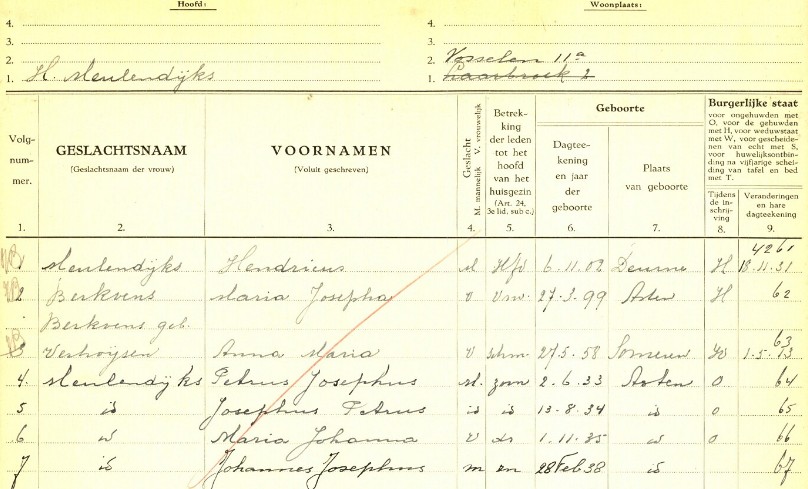 Hoofd: Woonplaats:
4. 4.
3. 3.
2. 2. Vosselen 11a
1. H. Meulendijks 1. Laarbroek 2
Volg-nummer. GESLACHTSNAAM (Geslachtsnaam der vrouw) VOORNAMEN (Voluit geschreven) Geslacht M. mannelijk V. vrouwelijk Betrekking der leden tot het hoofd van het huisgezin (Art. 24, 3e lid. sub c.) Geboorte Dagteekening en jaar der geboorte Plaats van geboorte Burgerlijke staat voor ongehuwden met O, voor de gehuwden met H, voor weduwstaat met W, voor gescheidenen van echt met S, voor huwelijksonthinding na vijfjarige scheiding van tafel en bed met T. Tijdens de inschrijving Veranderingen en hare dagteekening
1. 2. 3. 4. 5. 6. 7. 8. 9.
4261
1 Meulendijks Hendricus M Hfd 6.11.02 Deurne H 18.11.31
2 Berkvens Maria Josepha v vrw. 27.3.99 Asten H 62
Berkvens geb.
63
3 Verhoijsen Anna Maria v schm. 27.5.58 Someren W 1.5.13
4. Meulendijks Petrus Josephus M. zoon 2.6.33 Asten O 64
5 id Josephus Petrus id id 13-8.34 id O 65
6 id Maria Johanna v dr 1.11.35 id O 66
7 id Johannes Josephus m zn 28 Feb 38 id 67